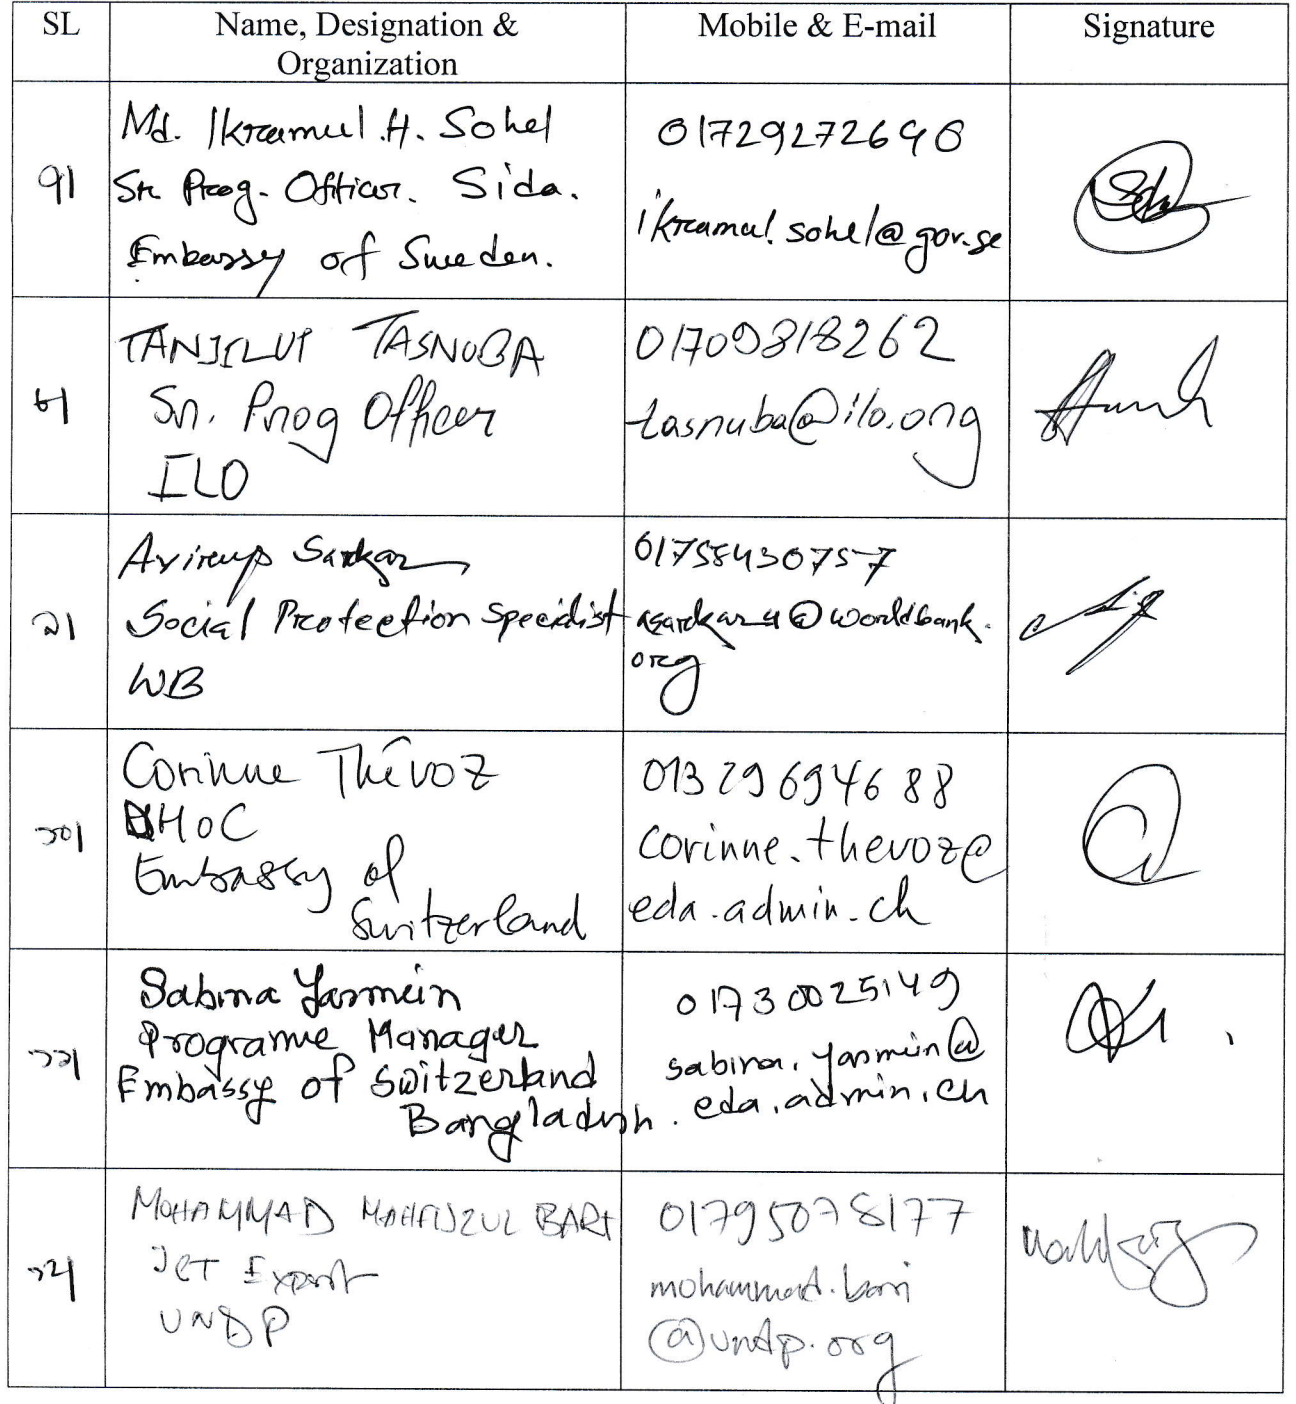 SL Name, Designation & Mobile & E-mail Signature
Organization
Md. Ikramul .H. Sohel
৭। Sr. Prog. Officer. Sida.
Embassy of Sweden.
01729272690
ikramul.sohel@gov.se
TANJILUT TASNUBA
৮। Sr. Prog Officer
ILO
01709818262
tasnuba@ilo.org
Avirup Sarkar
৯। Social Protection Specialist
WB
01755430757
asarkar4@worldbank.
org
Corinne Thévoz
১০। HoC
Embassy of
Switzerland
01329694688
corinne.thevoz@
eda.admin.ch
Sabina Yasmin
Programme Manager
১১। Embassy of Switzerland
Bangladesh.
01730025149
sabina.yasmin@
eda.admin.ch
MOHAMMAD MAHFUZUL BARI
১২। ICT Expert
UNDP
01795078177
mohammad.bari
@undp.org